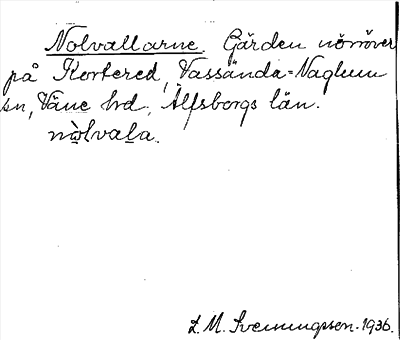 Nolvallarne. Gärden nörröver
på Kortered, Vassända=Naglum
sn, Väne hd, Älfsborgs län.
nòlvala.
L. M. Svenungsson. 1936.